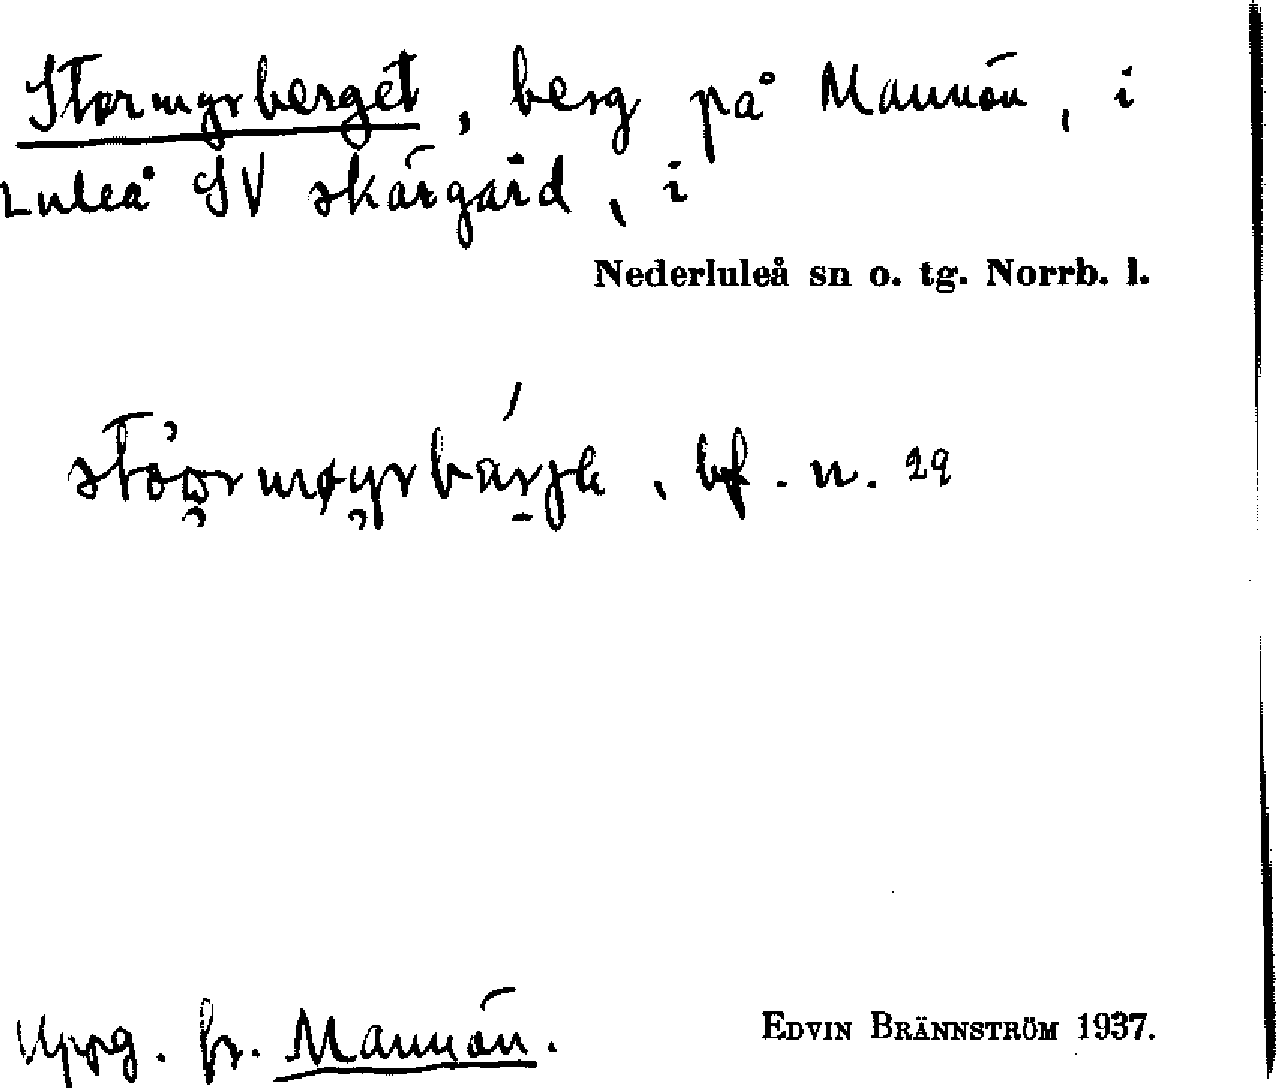 Stormyrberget, berg på Mannön, i
Luleå SV skärgård, i
Nederluleå sn o. tg. Norrb. l.
, bf. n. 29
Uppg. fr. Mannön.
EDVIN BRÄNNSTRÖM 1937.